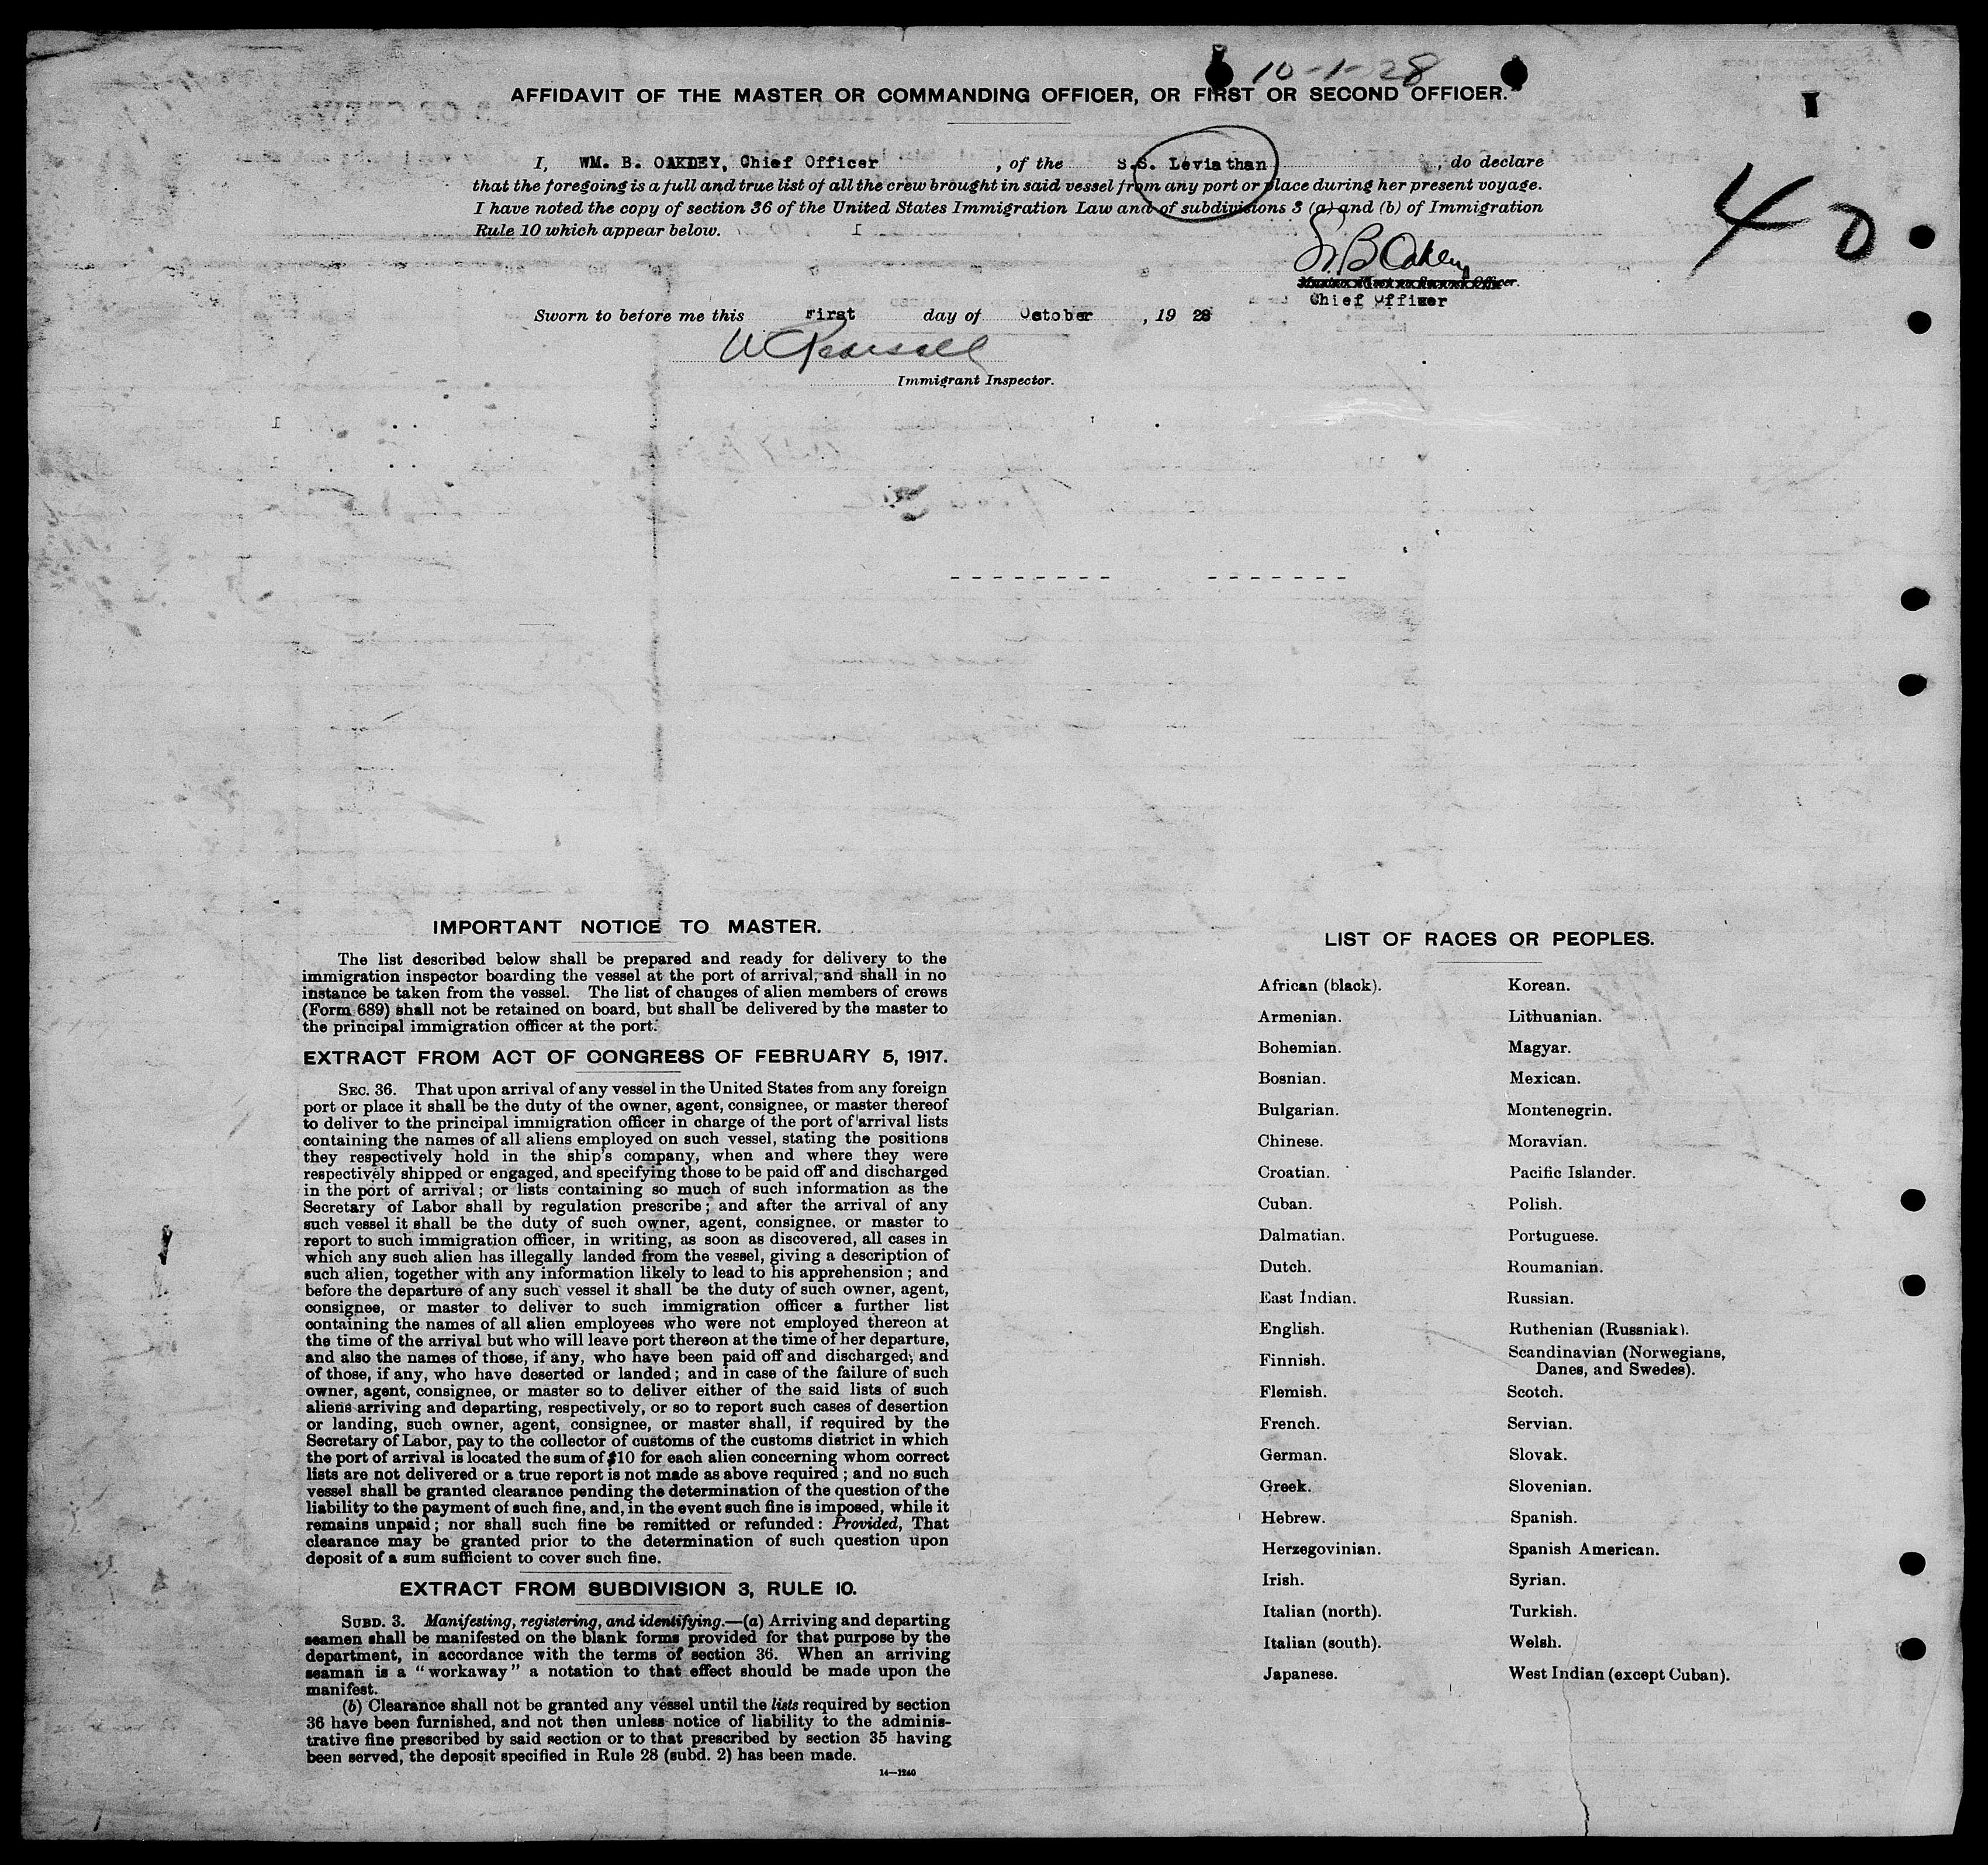 10-1-28
AFFIDAVIT OF THE MASTER OR COMMANDING OFFICER, OR FIRST OR SECOND OFFICER.
I, WM. B. OAKDEY, Chief Officer , of the S.S. Leviathan , do declare
that the foregoing is a full and true list of all the crew brought in said vessel from any port or place during her present voyage.
I have noted the copy of section 36 of the United States Immigration Law and of subdivisions 3 (a) and (b) of Immigration
Rule 10 which appear below.
40
Chief Officer
Sworn to before me this First day of October , 19 28
Immigrant Inspector.
IMPORTANT NOTICE TO MASTER.
The list described below shall be prepared and ready for delivery to the
immigration inspector boarding the vessel at the port of arrival, and shall in no
instance be taken from the vessel. The list of changes of alien members of crews
(Form 689) shall not be retained on board, but shall be delivered by the master to
the principal immigration officer at the port.
EXTRACT FROM ACT OF CONGRESS OF FEBRUARY 5, 1917.
SEC. 36. That upon arrival of any vessel in the United States from any foreign
port or place it shall be the duty of the owner, agent, consignee, or master thereof
to deliver to the principal immigration officer in charge of the port of arrival lists
containing the names of all aliens employed on such vessel, stating the positions
they respectively hold in the ship's company, when and where they were
respectively shipped or engaged, and specifying those to be paid off and discharged
in the port of arrival; or lists containing so much of such information as the
Secretary of Labor shall by regulation prescribe; and after the arrival of any
such vessel it shall be the duty of such owner, agent, consignee, or master to
report to such immigration officer, in writing, as soon as discovered, all cases in
which any such alien has illegally landed from the vessel, giving a description of
such alien, together with any information likely to lead to his apprehension; and
before the departure of any such vessel it shall be the duty of such owner, agent,
consignee, or master to deliver to such immigration officer a further list
containing the names of all alien employees who were not employed thereon at
the time of the arrival but who will leave port thereon at the time of her departure,
and also the names of those, if any, who have been paid off and discharged, and
of those, if any, who have deserted or landed; and in case of the failure of such
owner, agent, consignee, or master so to deliver either of the said lists of such
aliens arriving and departing, respectively, or so to report such cases of desertion
or landing, such owner, agent, consignee, or master shall, if required by the
Secretary of Labor, pay to the collector of customs of the customs district in which
the port of arrival is located the sum of $10 for each alien concerning whom correct
lists are not delivered or a true report is not made as above required; and no such
vessel shall be granted clearance pending the determination of the question of the
liability to the payment of such fine, and, in the event such fine is imposed, while it
remains unpaid; nor shall such fine be remitted or refunded: Provided, That
clearance may be granted prior to the determination of such question upon
deposit of a sum sufficient to cover such fine.
EXTRACT FROM SUBDIVISION 3, RULE 10.
SUBD. 3. Manifesting, registering, and identifying.—(a) Arriving and departing
seamen shall be manifested on the blank forms provided for that purpose by the
department, in accordance with the terms of section 36. When an arriving
seaman is a "workaway" a notation to that effect should be made upon the
manifest.
(b) Clearance shall not be granted any vessel until the lists required by section
36 have been furnished, and not then unless notice of liability to the adminis-
trative fine prescribed by said section or to that prescribed by section 35 having
been served, the deposit specified in Rule 28 (subd. 2) has been made.
14—1240
LIST OF RACES OR PEOPLES.
African (black).
Armenian.
Bohemian.
Bosnian.
Bulgarian.
Chinese.
Croatian.
Cuban.
Dalmatian.
Dutch.
East Indian.
English.
Finnish.
Flemish.
French.
German.
Greek.
Hebrew.
Herzegovinian.
Irish.
Italian (north).
Italian (south).
Japanese.
Korean.
Lithuanian.
Magyar.
Mexican.
Montenegrin.
Moravian.
Pacific Islander.
Polish.
Portuguese.
Roumanian.
Russian.
Ruthenian (Russniak).
Scandinavian (Norwegians,
Danes, and Swedes).
Scotch.
Servian.
Slovak.
Slovenian.
Spanish.
Spanish American.
Syrian.
Turkish.
Welsh.
West Indian (except Cuban).